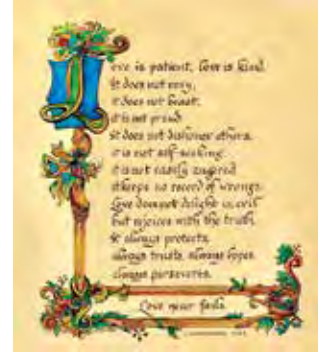 Love is patient, Love is kind.
It does not envy,
it does not boast,
it is not proud.
It does not dishonor others,
it is not self-seeking,
it is not easily angered
it keeps no record of wrongs.
Love does not delight in evil
but rejoices with the truth.
It always protects,
always trusts, always hopes
always perseveres.
Love never fails.